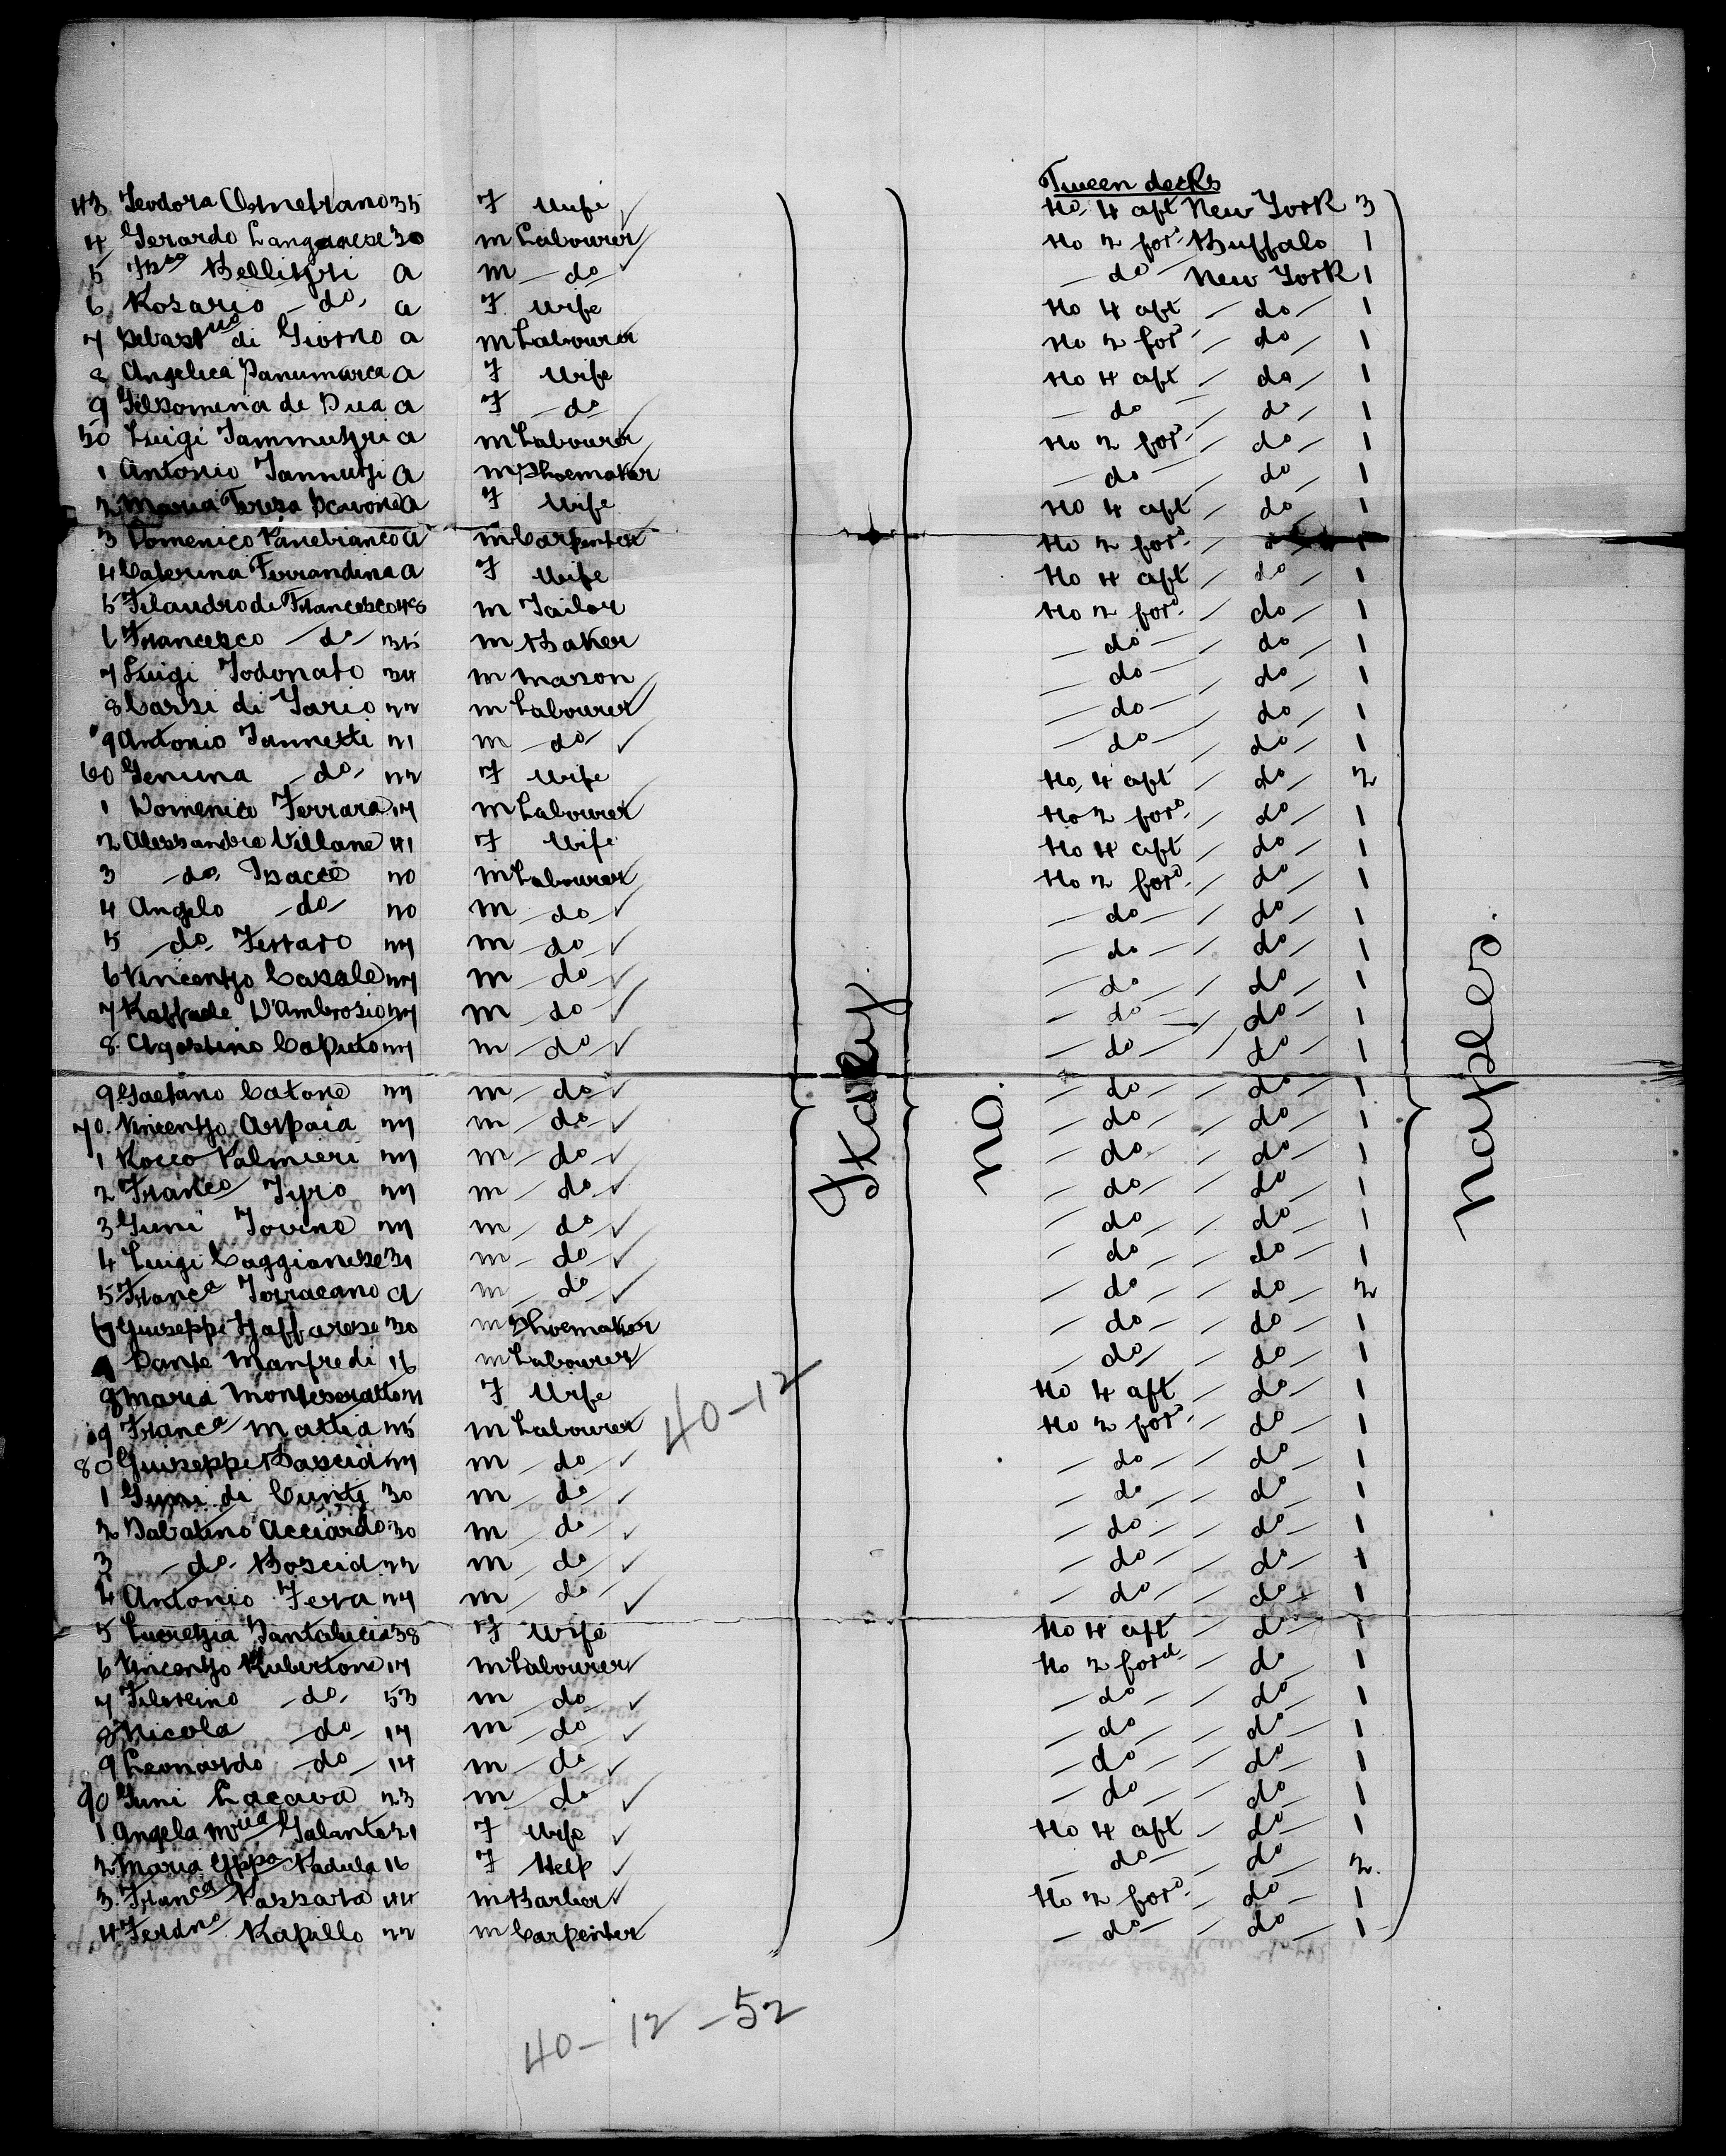 Tween decks
43 Teodora 35 F Wife No. 4 aft New York 3
4 Gerardo Langanese 30 m Labourer No 2 for^d Buffalo 1
5 Bellitzri a m - do - do - New York 1
6 Rosario - do - a F Wife No 4 aft - do - 1
7 di Giorno a m Labourer No 2 for^d - do - 1
8 Angelica Panumarca a F Wife No 4 aft - do - 1
9 Filsomena de Dua a F - do - do - do - 1
50 Luigi a m Labourer No 2 for^d - do - 1
1 Antonio a m Shoemaker - do - do - 1
2 Maria Teresa Scavone a F Wife No 4 aft - do - 1
3 Domenico Panebianco a m Carpenter No 2 for^d 1
4 Caterina Ferrandina a F Wife No 4 aft - do - 1
5 Filandro di Francesco 48 m Tailor No 2 for^d - do - 1
6 Francesco - do - 35 m Baker - do - do - 1
7 Luigi Iodonato 34 m Mason - do - do - 1
8 di 22 m Labourer - do - do - 1
9 Antonio Iannetti 21 m - do - do - do - 1
60 - do - 22 F Wife No. 4 aft - do - 2
1 Domenico Ferrara 17 m Labourer No 2 for^d - do - 1
2 Alessandra Villane 41 F Wife No 4 aft - do - 1
3 - do - 20 m Labourer No 2 for^d - do - 1
4 Angelo - do - 20 m - do - do - do - 1
5 - do - Ferraro 27 m - do - do - do - 1
6 Vincenzo Casale 27 m - do - do - do - 1
7 Raffaele D'Ambrosio 27 m - do - do - do - 1
8 Agostino Caputo 27 m - do - do - do - 1
9 Gaetano Catone 27 m - do - do - do - 1
70. Vincenzo Arpaia 27 m - do - do - do - 1
1 Rocco Palmieri 27 m - do - do - do - 1
2 Franco 27 m - do - do - do - 1
3 Iovino 27 m - do - do - do - 1
4 Luigi Caggianese 31 m - do - do - do - 1
5 Franc^a Terracano a m - do - do - do - 2
6 Giuseppi Zaffarese 30 m Shoemaker - do - do - 1
Dante Manfredi 16 m Labourer - do - do - 1
8 Maria 21 F Wife No 4 aft - do - 1
9 Franc^a Mattia 25 m Labourer No 2 for^d - do - 1
80 Giuseppi 27 m - do - do - do - 1
1 di 30 m - do - do - do - 1
2 Sabatino Acciardo 30 m - do - do - do - 1
3 - do - 22 m - do - do - do - 1
4 Antonio Fera 27 m - do - do - do - 1
5 Lucrezia Santalucia 38 F Wife No 4 aft - do - 1
6 Vincenzo Rubertone 17 m Labourer No 2 for^d - do - 1
7 - do - 53 m - do - do - do - 1
8 Nicola - do - 17 m - do - do - do - 1
9 Leonardo - do - 14 m - do - do - do - 1
90 Lacava 23 m - do - do - do - 1
1 Angela M^ria Galante 21 F Wife No 4 aft - do - 1
2 Maria Gppa Padula 16 F Help - do - do - 2
3. Franc^a Passara 44 m Barber No 2 for^d - do - 1
4. Ferd^no Rapillo 22 m Carpenter - do - do - 1
Italy
no.
Naples.
40-12
40-12-52